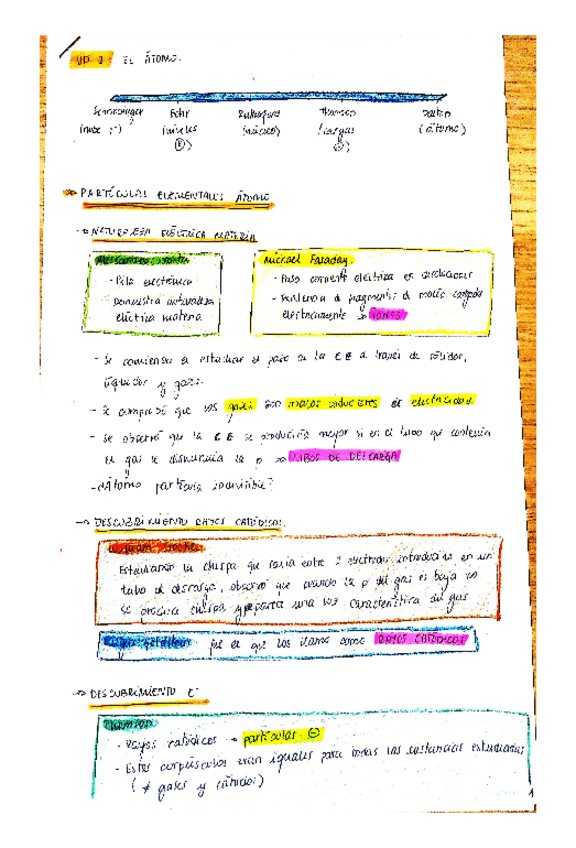 UD 2 EL ÁTOMO.
Schrödinger Bohr Rutherford Thomson Dalton
(nube e⁻) (niveles (núcleo) (cargas (átomo)
E) ⊖)
⇒ PARTÍCULAS ELEMENTALES ÁTOMO
→ NATURALEZA ELÉCTRICA MATERIA
Alessandro Volta
- Pila electrónica
demuestra naturaleza
eléctrica materia
Michael Faraday.
- Paso corriente eléctrica en disoluciones
- existencia de fragmentos de materia cargados
eléctricamente ⇒ IONES
- Se comienza a estudiar el paso de la CE a través de sólidos,
líquidos y gases.
- Se comprobó que los gases son malos conductores de electricidad
- Se observó que la CE se producía mejor si en el tubo que contenía
el gas se disminuía la p ⇒ TUBOS DE DESCARGA
- ¿Átomo partícula indivisible?
→ DESCUBRIMIENTO RAYOS CATÓDICOS.
William Crookes
Estudiando la chispa que salía entre 2 electrodos introducidos en un
tubo de descarga, observó que cuando la p del gas es baja no
se produce chispa y aparece una luz característica del gas
Eugen Goldstein fue el que los llamó como RAYOS CATÓDICOS
→ DESCUBRIMIENTO e⁻
Thomson
- Rayos catódicos → partículas ⊖
- Estos corpúsculos eran iguales para todas las sustancias estudiadas
(≠ gases y cátodos)
1